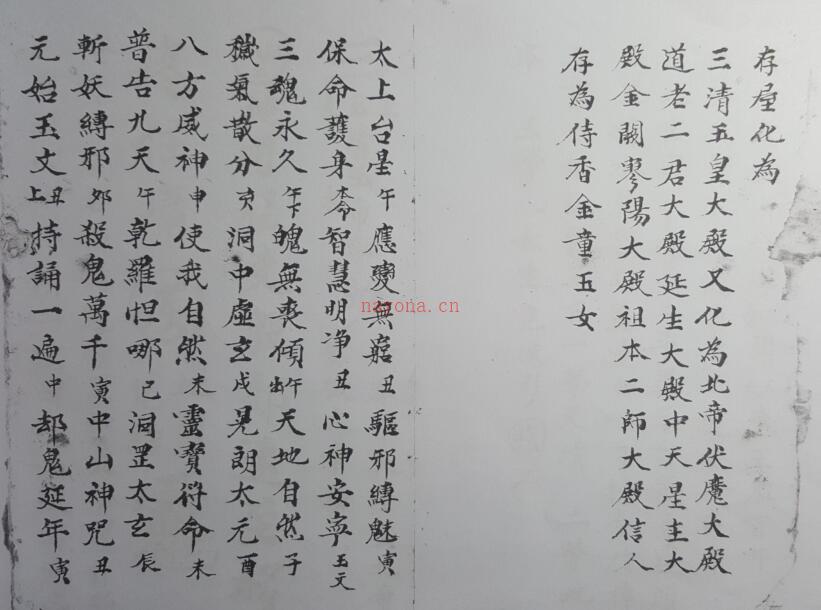 存屋化為
三清五皇大殿又化為北帝伏魔大殿
道老二君大殿延生大殿中天星主大
殿金闕寥陽大殿祖本二師大殿信人
存為侍香金童玉女
太上台星午應變無窮丑驅邪縛魅寅
保命護身本命智慧明净丑心神安寧玉文
三魂永久午下魄無喪傾午出天地自然子
穢氣散分亥洞中虛玄戌晃朗太元酉
八方威神申使我自然未靈寶符命未
普告九天午乾羅怛哪己洞罡太玄辰
斬妖縛邪卯殺鬼萬千寅中山神咒丑
元始玉文丑上持誦一遍中却鬼延年寅
nayona.cn